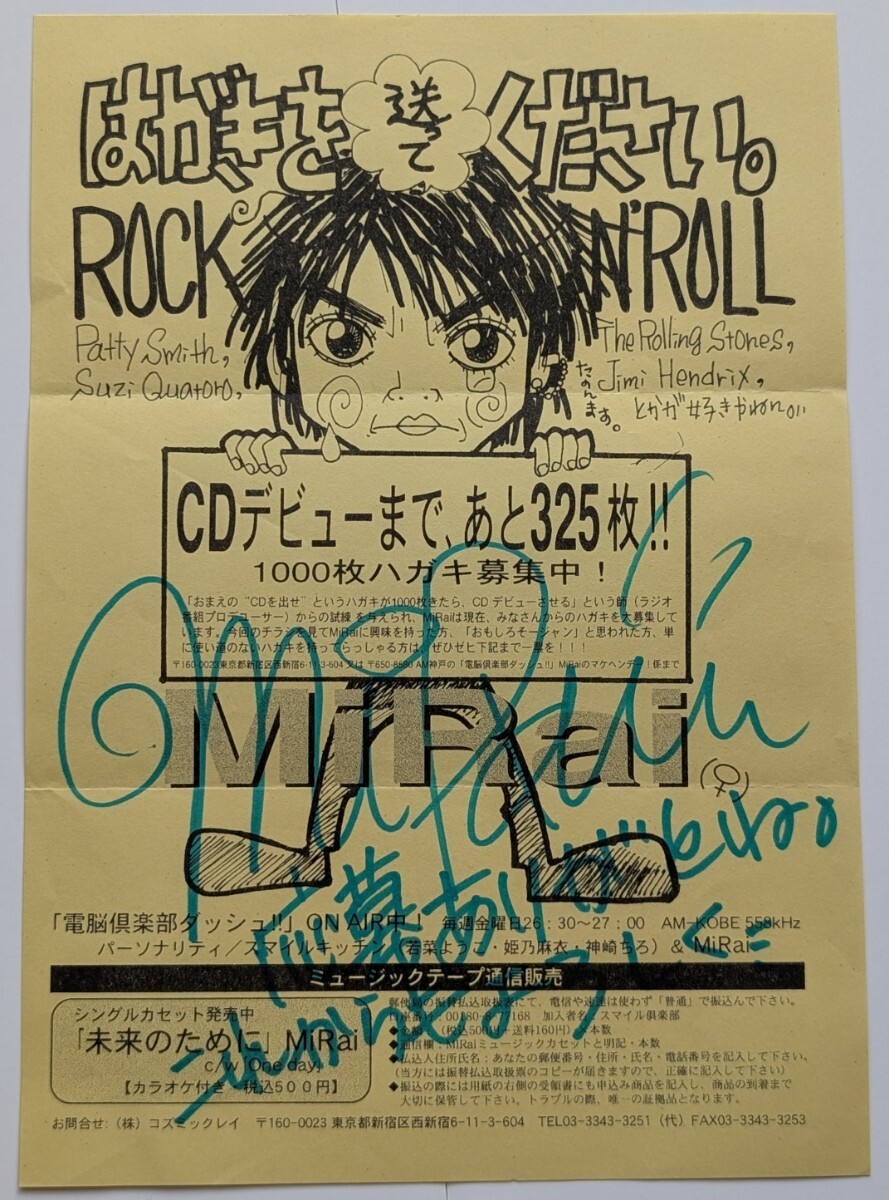 はがきを送ってください。
ROCK N'ROLL
Patty Smith,
Suzi Quatoro,
The Rolling Stones,
Jimi Hendrix,
とかが好きやねん。
たのんます。
CDデビューまで、あと325枚!!
1000枚ハガキ募集中!
「おまえの“CDを出せ”というハガキが1000枚きたら、CDデビューさせる」という師(ラジオ
番組プロデューサー)からの試練を与えられ、MiRaiは現在、みなさんからのハガキを大募集して
います。今回のチラシを見てMiRaiに興味を持った方、「おもしろそージャン」と思われた方、単
に使い道のないハガキを持ってらっしゃる方は、ぜひゼヒ下記まで一票を!!!
〒160-0023東京都新宿区西新宿6-11-3-604 又は 〒650-8580 AM神戸の「電脳倶楽部ダッシュ!!」MiRaiのマケヘンデー」係まで
MiRai
MiRai
(♀)
応募ありがとねo
これからもヨロシク
「電脳倶楽部ダッシュ!!」ON AIR中! 毎週金曜日26:30〜27:00 AM-KOBE 558kHz
パーソナリティ/スマイルキッチン(若菜ようこ・姫乃麻衣・神崎ちろ)& MiRai
ミュージックテープ通信販売
シングルカセット発売中
「未来のために」MiRai
c/w「One day」
【カラオケ付き・税込500円】
郵便局の振替払込取扱表にて、電信や速達は使わず「普通」で振込んで下さい。
口座番号:00180-8-77168 加入者名:スマイル倶楽部
◆金額:(税込500円+送料160円)×本数
◆通信欄:MiRaiミュージックカセットと明記・本数
◆払込人住所氏名:あなたの郵便番号・住所・氏名・電話番号を記入して下さい。
(当方には振替払込取扱票のコピーが届きますので、正確に記入して下さい)
◆振込の際には用紙の右側の受領書にも申込み商品を記入し、商品の到着まで
大切に保管して下さい。トラブルの際、唯一の証拠品となります。
お問合せ:(株)コズミックレイ 〒160-0023 東京都新宿区西新宿6-11-3-604 TEL03-3343-3251(代)FAX03-3343-3253